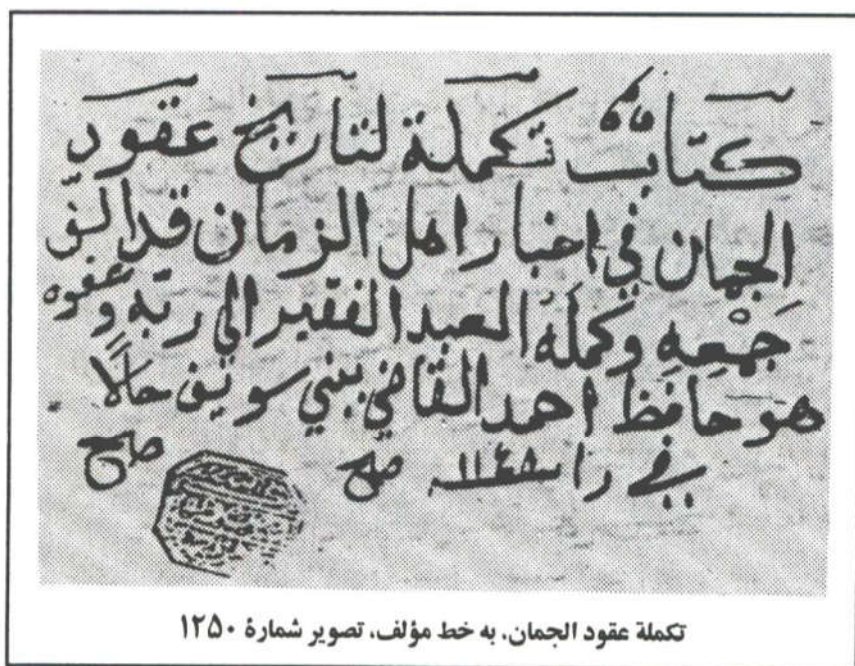 كتاب تكملة لتاريخ عقود
الجمان في اخبار اهل الزمان قد الف
جمعه وكمله العبد الفقير الي ربه وعفوه
هو حافظ احمد القاضي ببني سويف حالا
في را سنة ١١٤٥ صح صح
تکملة عقود الجمان، به خط مؤلف، تصویر شمارهٔ ۱۲۵۰